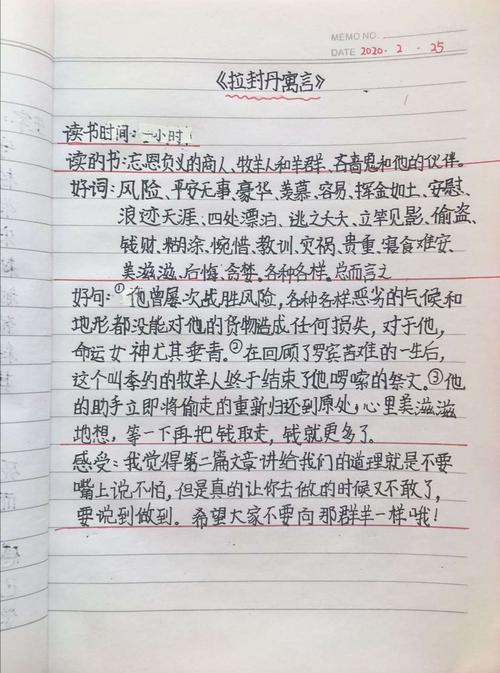 MEMO NO.
DATE 2020.2.25
《拉封丹寓言》
读书时间:一小时
读的书:忘恩负义的商人、牧羊人和羊群、吝啬鬼和他的伙伴。
好词:风险、平安无事、豪华、羡慕、容易、挥金如土、安慰、
浪迹天涯、四处漂泊、逃之夭夭、立竿见影、偷盗、
钱财、糊涂、惋惜、教训、灾祸、贵重、寝食难安、
美滋滋、后悔、贪婪、各种各样。总而言之
好句:①他曾屡次战胜风险,各种各样恶劣的气候和
地形都没能对他的货物造成任何损失,对于他,
命运女神尤其垂青。②在回顾了罗宾苦难的一生后,
这个叫季约的牧羊人终于结束了他啰嗦的祭文。③他
的助手立即将偷走的重新归还到原处,心里美滋滋
地想,等一下再把钱取走,钱就更多了。
感受:我觉得第二篇文章讲给我们的道理就是不要
嘴上说不怕,但是真的让你去做的时候又不敢了,
要说到做到。希望大家不要向那群羊一样哦!